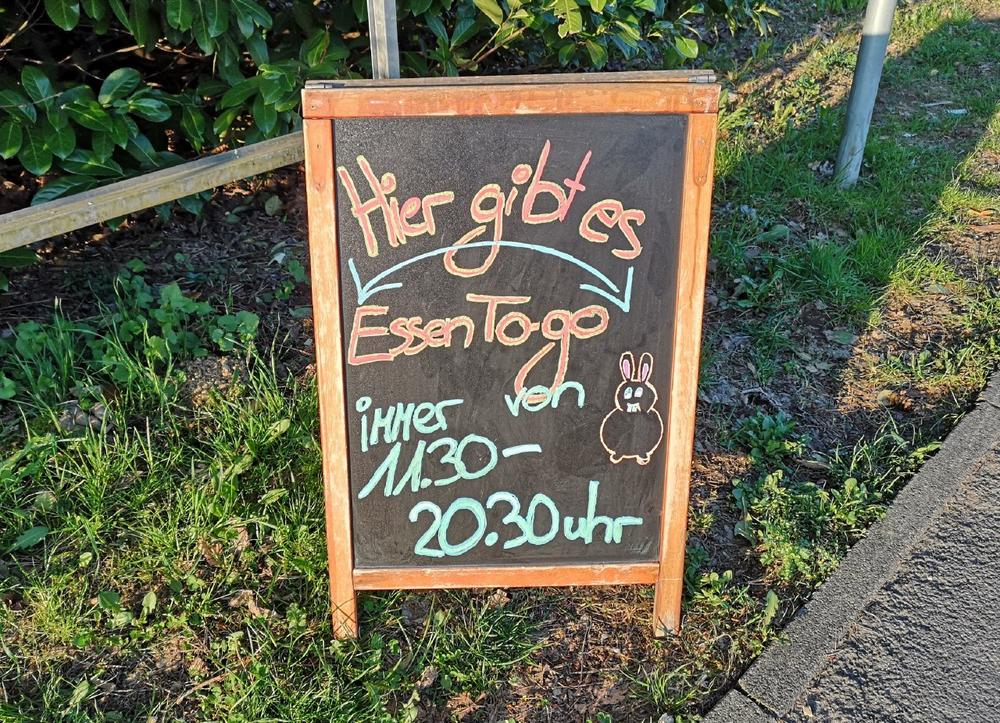 Hier gibt es
Essen To-go
immer von
11.30-
20.30 uhr